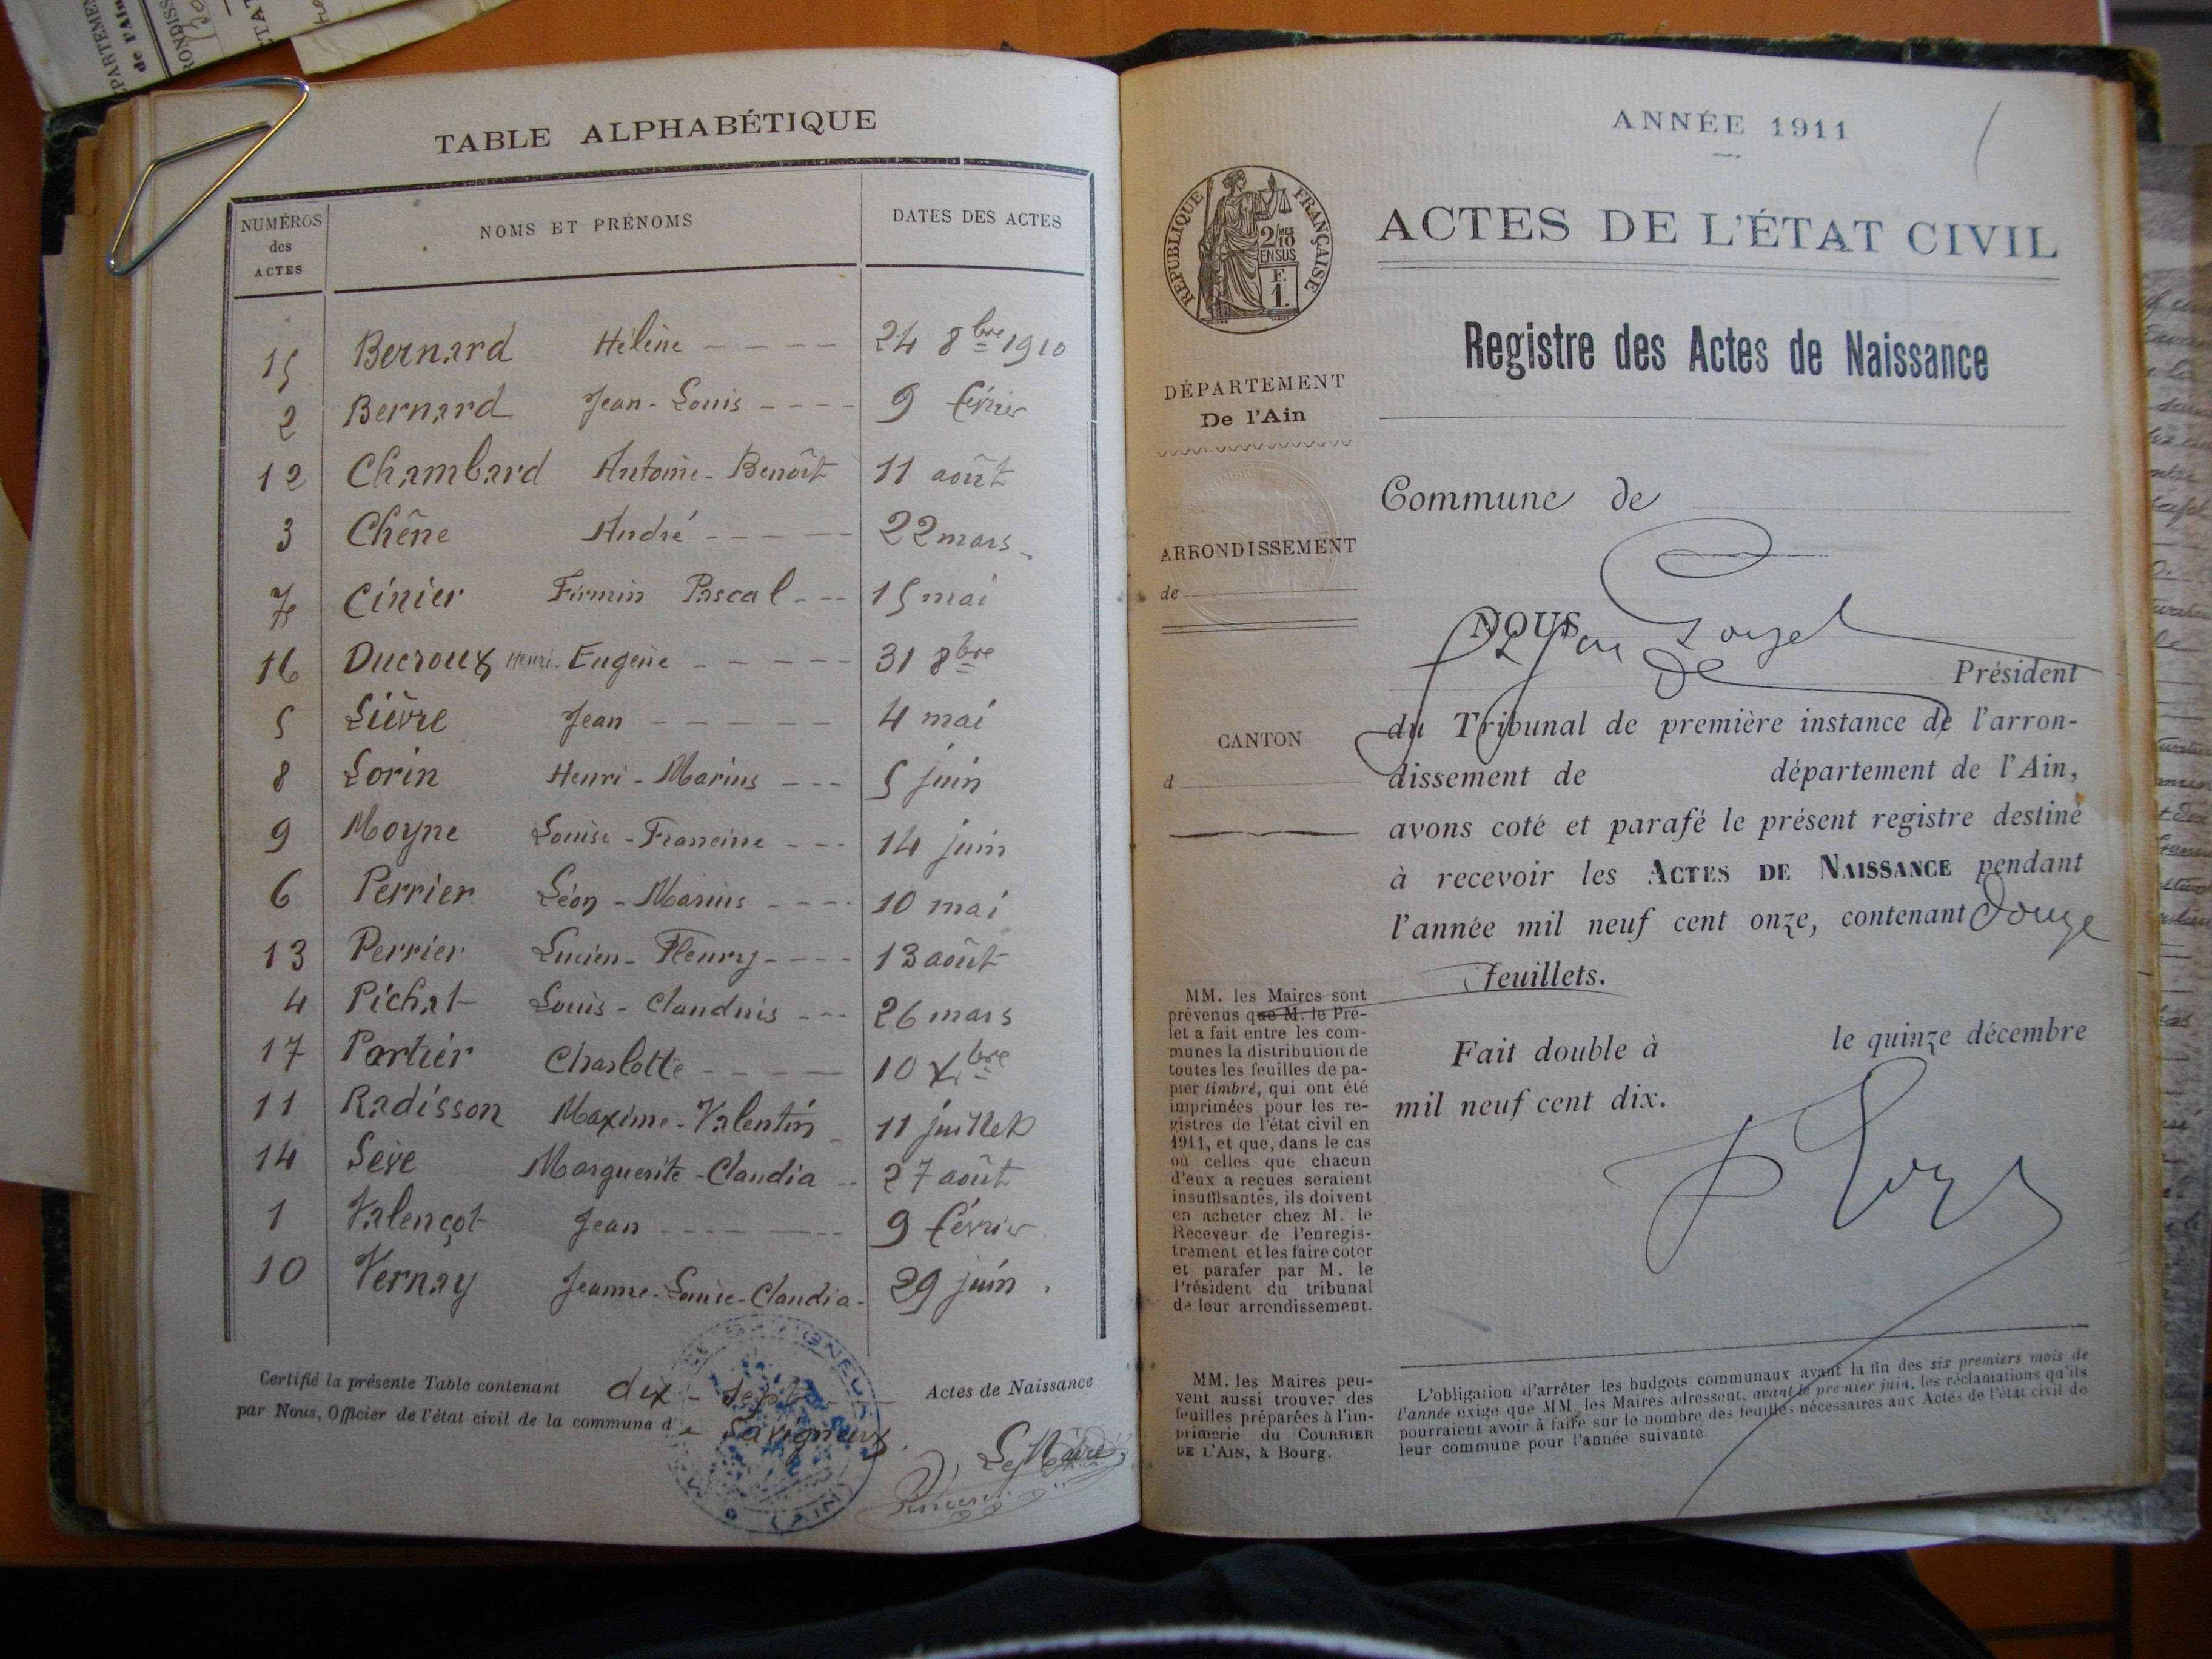 TABLE ALPHABÉTIQUE
NUMÉROS des ACTES
NOMS ET PRÉNOMS
DATES DES ACTES
15 Bernard Hélène 24 8bre 1910
2 Bernard Jean-Louis 9 février
12 Chambard Antoine-Benoît 11 août
3 Chêne André 22 mars
7 Cinier Firmin Pascal 15 mai
16 Ducroux Henri-Eugène 31 8bre
5 Lièvre Jean 4 mai
8 Lorin Henri-Marius 5 juin
9 Moyne Louise-Francine 14 juin
6 Perrier Léon-Marius 10 mai
13 Perrier Lucien-Fleury 13 août
4 Pichat Louis-Claudius 26 mars
17 Portier Charlotte 10 Xbre
11 Radisson Maxime-Valentin 11 juillet
14 Sève Marguerite-Claudia 27 août
1 Valençot Jean 9 février
10 Vernay Jeanne-Louise-Claudia 29 juin
Certifié la présente Table contenant dix-sept Actes de Naissance
par Nous, Officier de l'état civil de la commune de Savigneux.
Le Maire,
ANNÉE 1911
ACTES DE L'ÉTAT CIVIL
RÉPUBLIQUE FRANÇAISE
2/10MES
EN SUS
F.
1.
Registre des Actes de Naissance
DÉPARTEMENT
De l'Ain
Commune de
ARRONDISSEMENT
de
NOUS
Président
CANTON
d
du Tribunal de première instance de l'arron-
dissement de département de l'Ain,
avons coté et parafé le présent registre destiné
à recevoir les ACTES DE NAISSANCE pendant
l'année mil neuf cent onze, contenant douze
feuillets.
Fait double à le quinze décembre
mil neuf cent dix.
MM. les Maires sont
prévenus que M. le Pré-
fet a fait entre les com-
munes la distribution de
toutes les feuilles de pa-
pier timbré, qui ont été
imprimées pour les re-
gistres de l'état civil en
1911, et que, dans le cas
où celles que chacun
d'eux a reçues seraient
insuffisantes, ils doivent
en acheter chez M. le
Receveur de l'enregis-
trement et les faire coter
et parafer par M. le
Président du tribunal
de leur arrondissement.
MM. les Maires peu-
vent aussi trouver des
feuilles préparées à l'im-
primerie du COURRIER
DE L'AIN, à Bourg.
L'obligation d'arrêter les budgets communaux avant la fin des six premiers mois de
l'année exige que MM. les Maires adressent, avant le premier juin, les réclamations qu'ils
pourraient avoir à faire sur le nombre des feuilles nécessaires aux Actes de l'état civil de
leur commune pour l'année suivante.